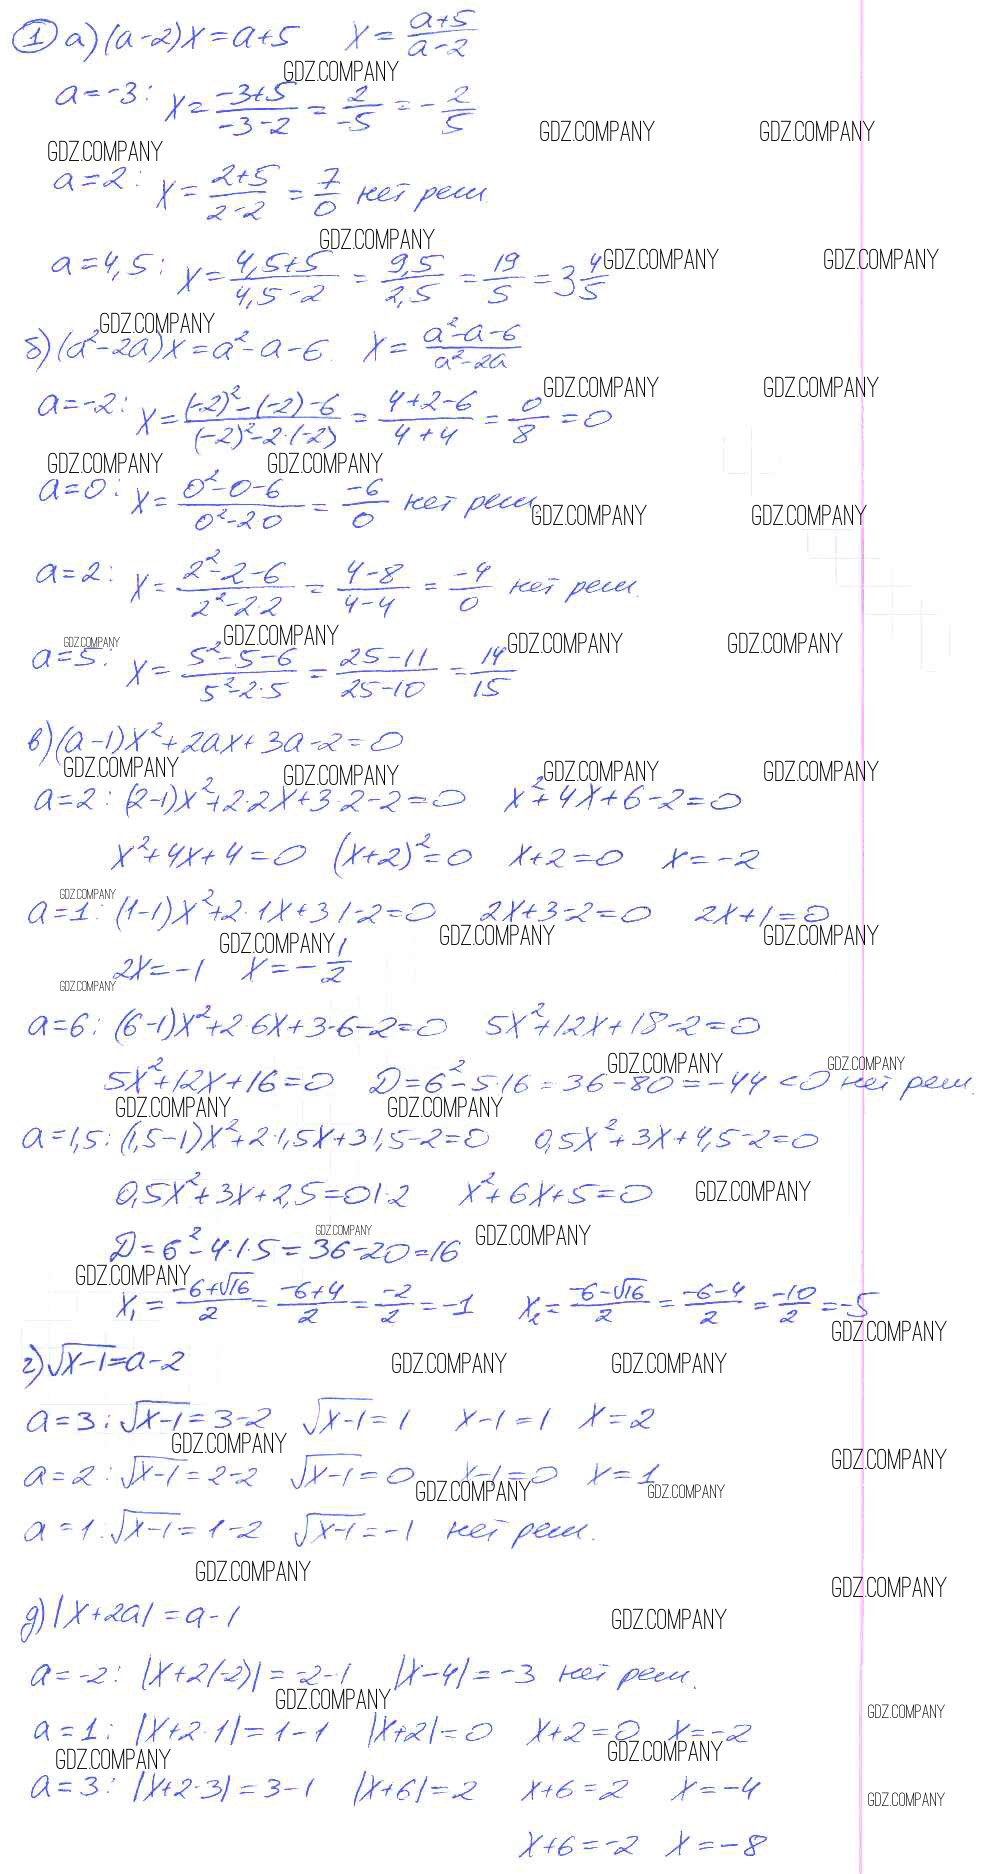 1 а) (a-2)x=a+5 x=(a+5)/(a-2)
GDZ.COMPANY
a=-3: x=(-3+5)/(-3-2)=2/-5=-2/5
GDZ.COMPANY GDZ.COMPANY
GDZ.COMPANY
a=2: x=(2+5)/(2-2)=7/0 нет реш.
GDZ.COMPANY
a=4,5: x=(4,5+5)/(4,5-2)=9,5/2,5=19/5=3 4/5
GDZ.COMPANY GDZ.COMPANY
GDZ.COMPANY
б) (a²-2a)x=a²-a-6 x=(a²-a-6)/(a²-2a)
GDZ.COMPANY GDZ.COMPANY
a=-2: x=((-2)²-(-2)-6)/((-2)²-2·(-2))=(4+2-6)/(4+4)=0/8=0
GDZ.COMPANY GDZ.COMPANY
a=0: x=(0²-0-6)/(0²-2·0)=-6/0 нет реш
GDZ.COMPANY GDZ.COMPANY
a=2: x=(2²-2-6)/(2²-2·2)=(4-8)/(4-4)=-4/0 нет реш.
GDZ.COMPANY GDZ.COMPANY GDZ.COMPANY GDZ.COMPANY
a=5: x=(5²-5-6)/(5²-2·5)=(25-11)/(25-10)=14/15
в) (a-1)x²+2ax+3a-2=0
GDZ.COMPANY GDZ.COMPANY GDZ.COMPANY GDZ.COMPANY
a=2: (2-1)x²+2·2x+3·2-2=0 x²+4x+6-2=0
x²+4x+4=0 (x+2)²=0 x+2=0 x=-2
GDZ.COMPANY
a=1: (1-1)x²+2·1x+3·1-2=0 2x+3-2=0 2x+1=0
GDZ.COMPANY GDZ.COMPANY GDZ.COMPANY
2x=-1 x=-1/2
GDZ.COMPANY
a=6: (6-1)x²+2·6x+3·6-2=0 5x²+12x+18-2=0
GDZ.COMPANY GDZ.COMPANY
5x²+12x+16=0 D=6²-5·16=36-80=-44<0 нет реш.
GDZ.COMPANY GDZ.COMPANY
a=1,5: (1,5-1)x²+2·1,5x+3·1,5-2=0 0,5x²+3x+4,5-2=0
0,5x²+3x+2,5=0|·2 x²+6x+5=0 GDZ.COMPANY
D=6²-4·1·5=36-20=16 GDZ.COMPANY GDZ.COMPANY
GDZ.COMPANY
x₁=(-6+√16)/2=(-6+4)/2=-2/2=-1 x₂=(-6-√16)/2=(-6-4)/2=-10/2=-5
GDZ.COMPANY
г) √(x-1)=a-2 GDZ.COMPANY GDZ.COMPANY
a=3: √(x-1)=3-2 √(x-1)=1 x-1=1 x=2
GDZ.COMPANY GDZ.COMPANY
a=2: √(x-1)=2-2 √(x-1)=0 x-1=0 x=1
GDZ.COMPANY GDZ.COMPANY
a=1: √(x-1)=1-2 √(x-1)=-1 нет реш.
GDZ.COMPANY GDZ.COMPANY
д) |x+2a|=a-1 GDZ.COMPANY
a=-2: |x+2(-2)|=-2-1 |x-4|=-3 нет реш.
GDZ.COMPANY GDZ.COMPANY
a=1: |x+2·1|=1-1 |x+2|=0 x+2=0 x=-2
GDZ.COMPANY GDZ.COMPANY
a=3: |x+2·3|=3-1 |x+6|=2 x+6=2 x=-4
GDZ.COMPANY
x+6=-2 x=-8